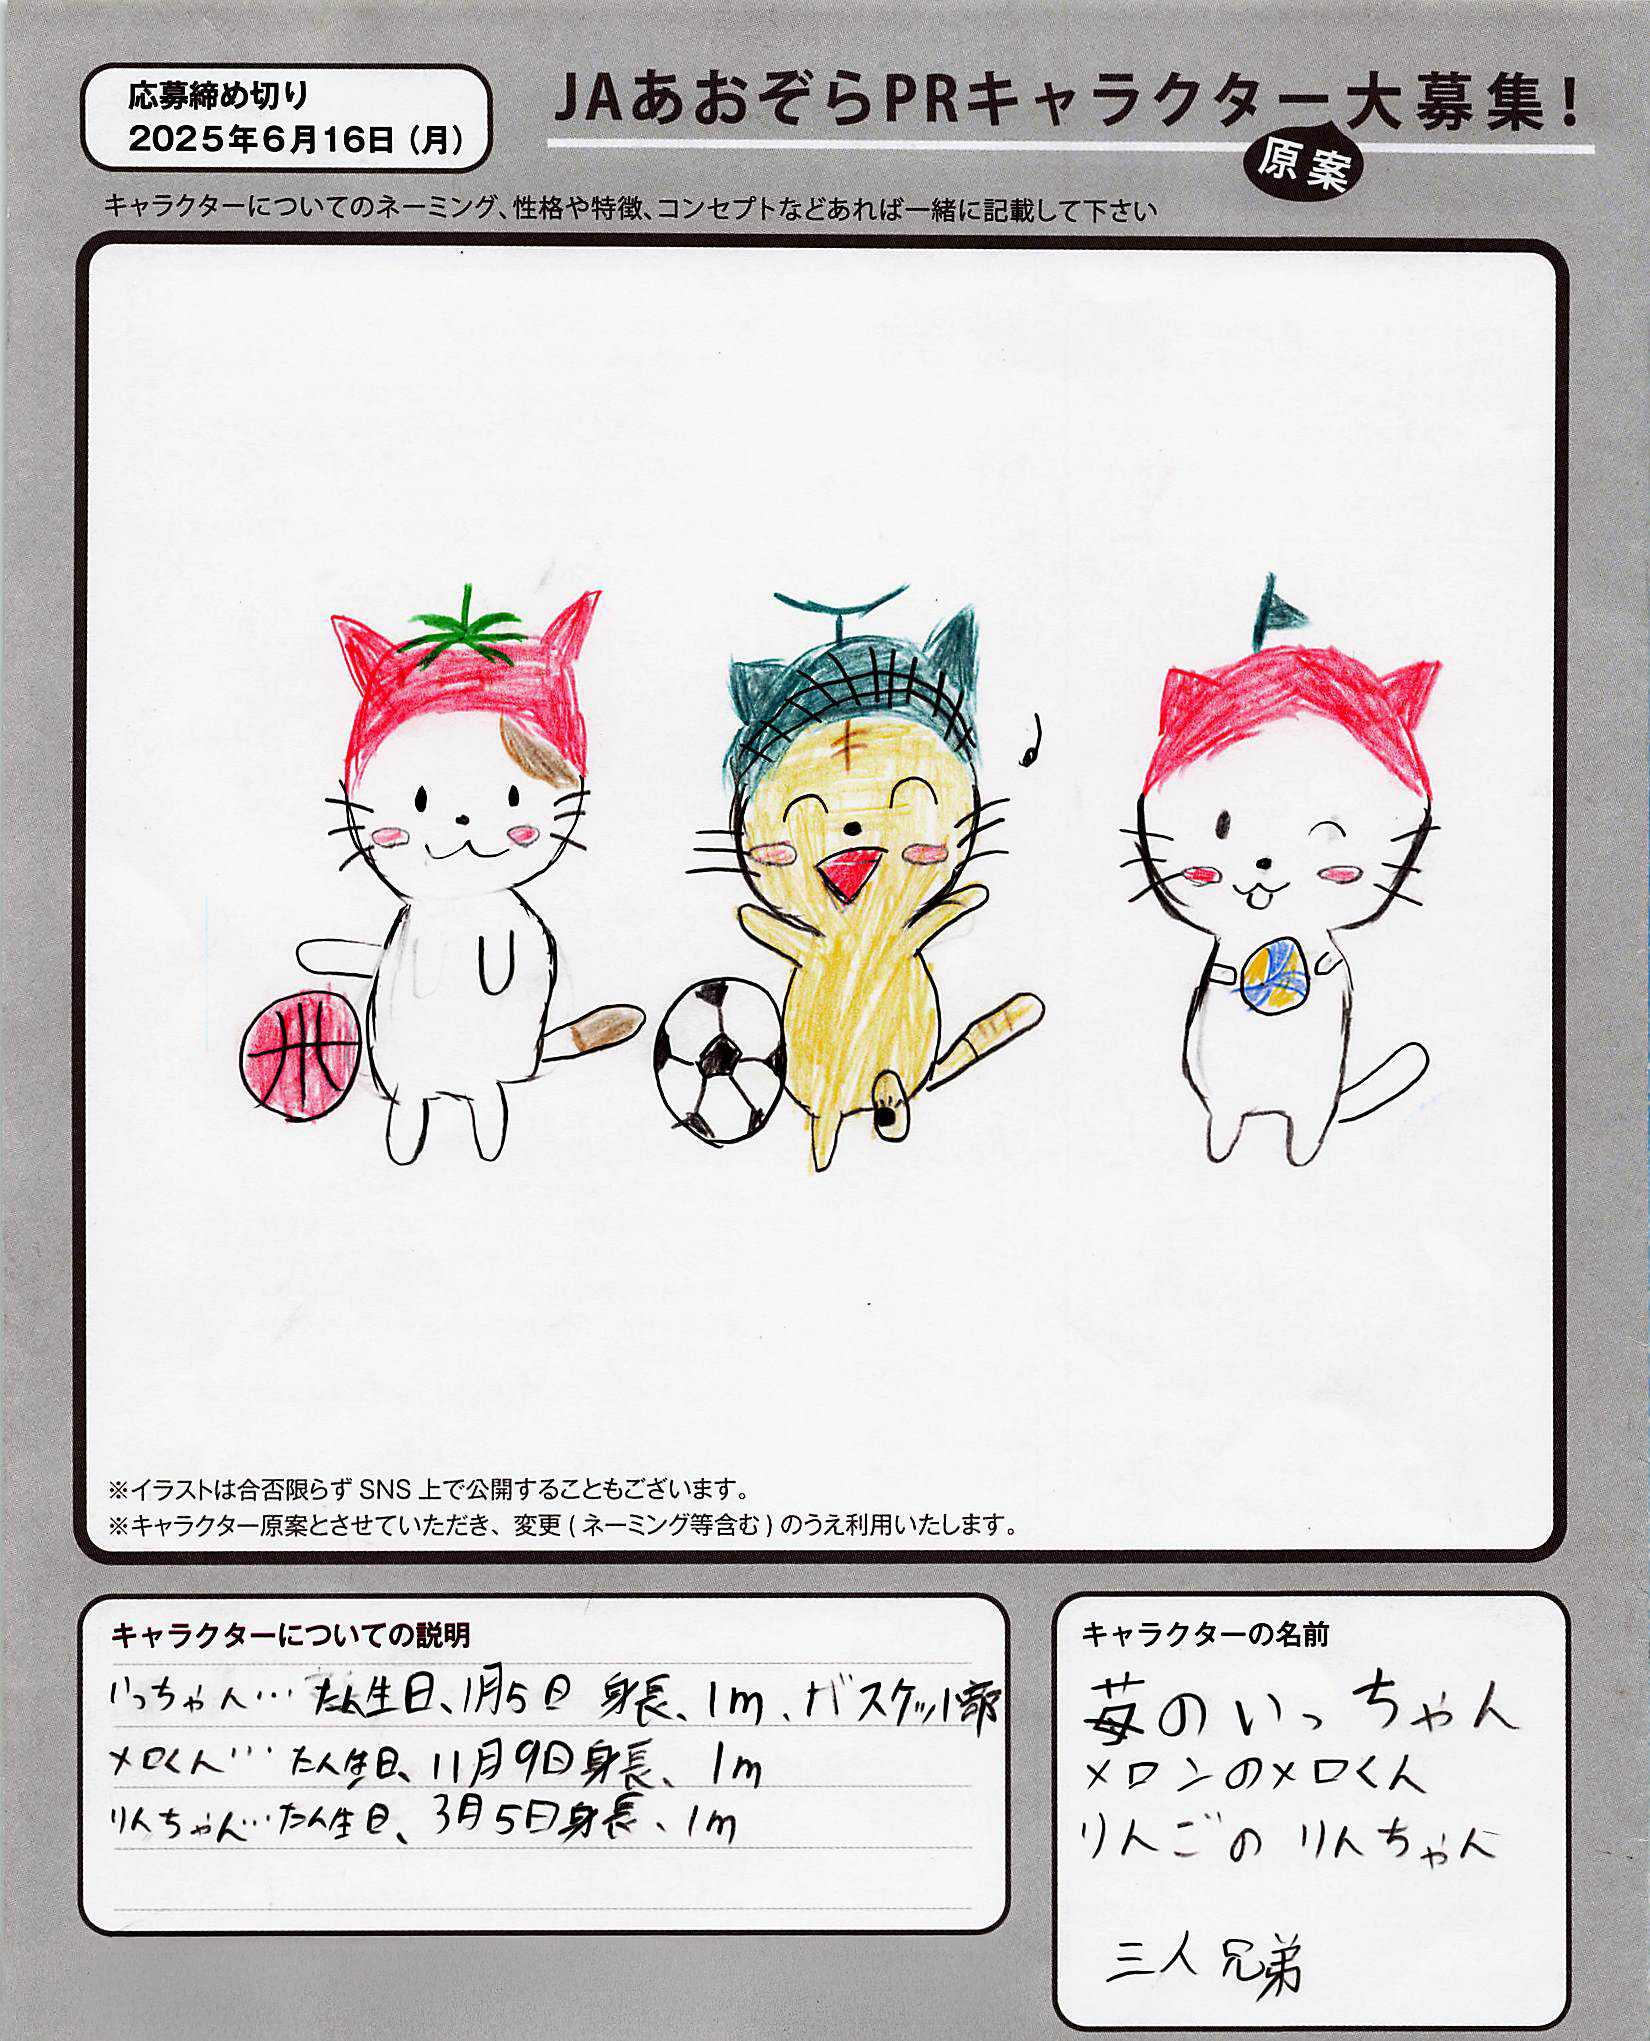 応募締め切り
2025年6月16日（月）
JAあおぞらPRキャラクター大募集！
原案
キャラクターについてのネーミング、性格や特徴、コンセプトなどあれば一緒に記載して下さい
※イラストは合否限らず SNS 上で公開することもございます。
※キャラクター原案とさせていただき、変更(ネーミング等含む)のうえ利用いたします。
キャラクターについての説明
いっちゃん… たん生日、1月5日 身長、1m、バスケット部
メロくん… たん生日、11月9日身長、1m
りんちゃん…たん生日、3月5日身長、1m
キャラクターの名前
苺のいっちゃん
メロンのメロくん
りんごのりんちゃん
三人兄弟